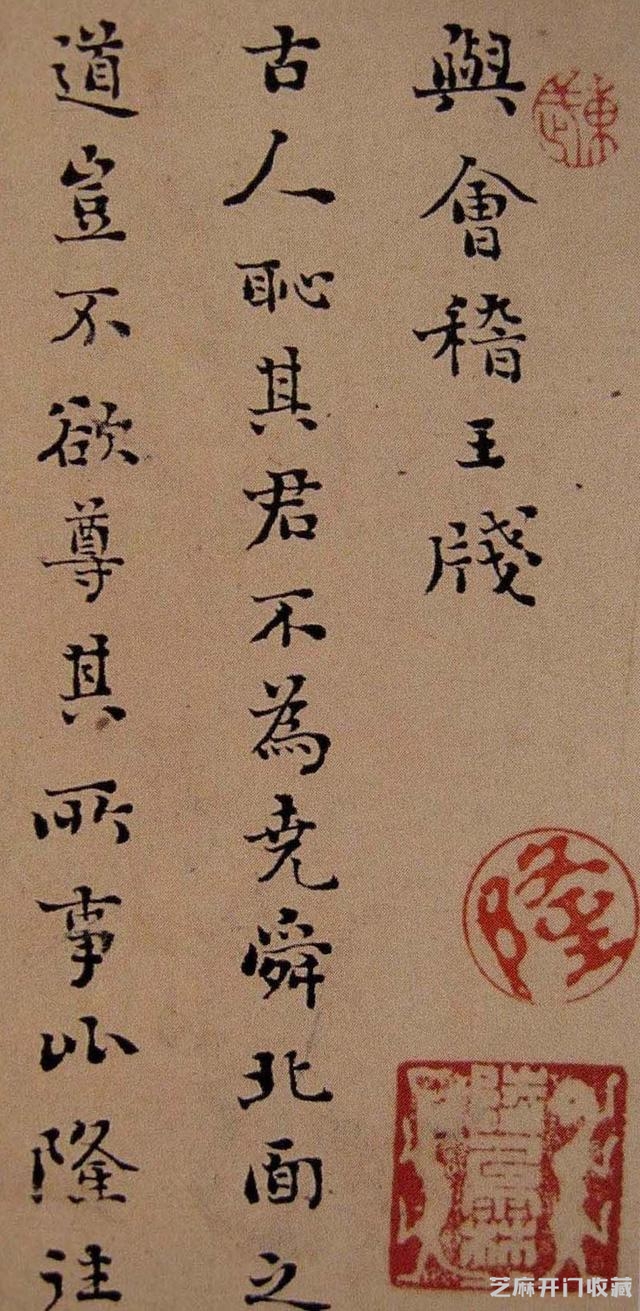 與會稽王牋
古人恥其君不為堯舜北面之
道豈不欲尊其所事比隆往
隆
芝麻开门收藏